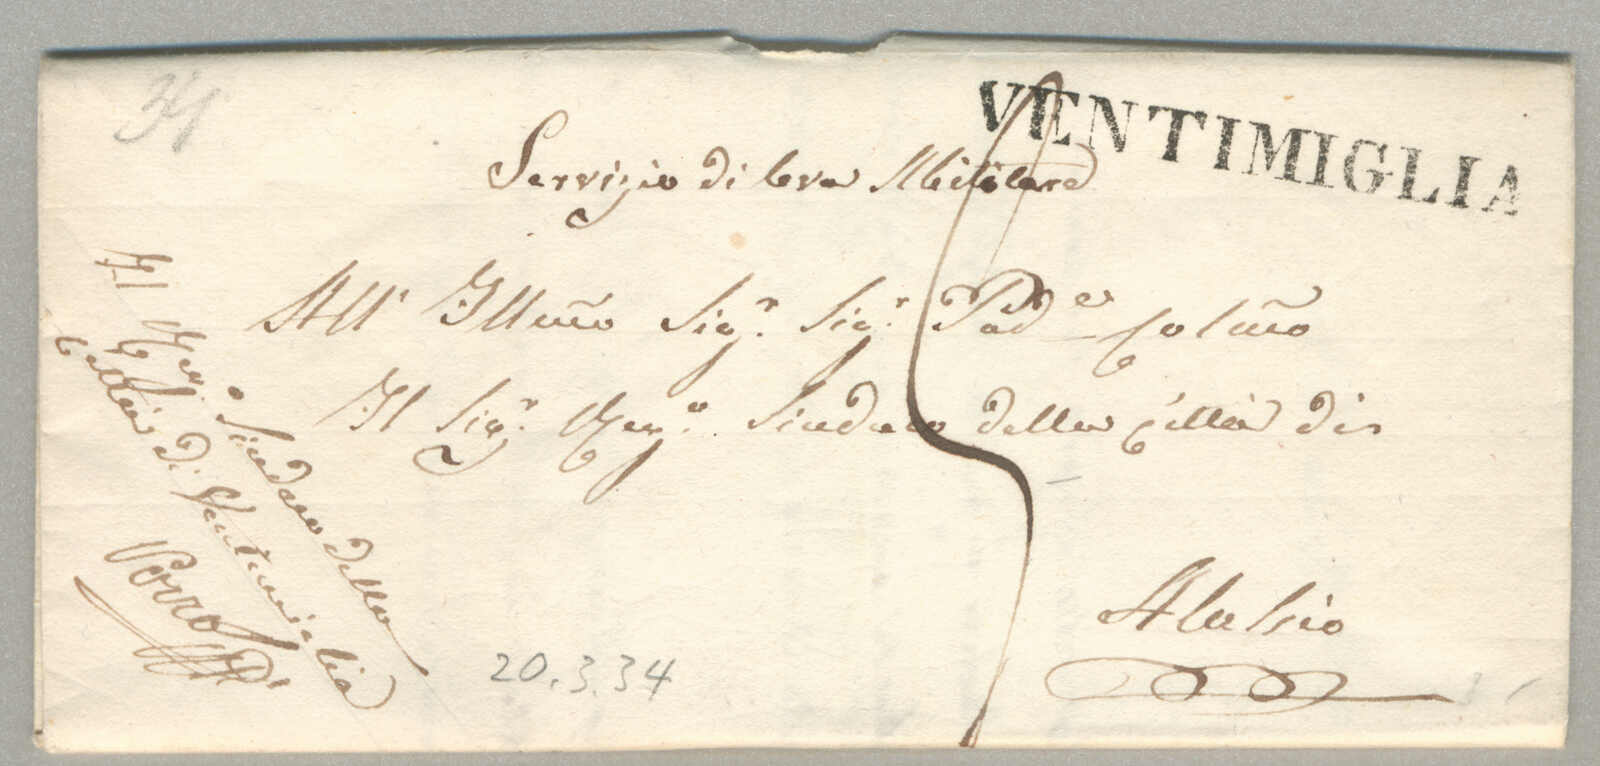 34
VENTIMIGLIA
Servizio di leva Militare
All' Illmo Sigr. Sigr. Pad.e Colmo
Il Sigr. Regg.o Sindaco della Città di
Alassio
Il Regg.o Sindaco della
Città di Ventimiglia
Porro
20.3.34